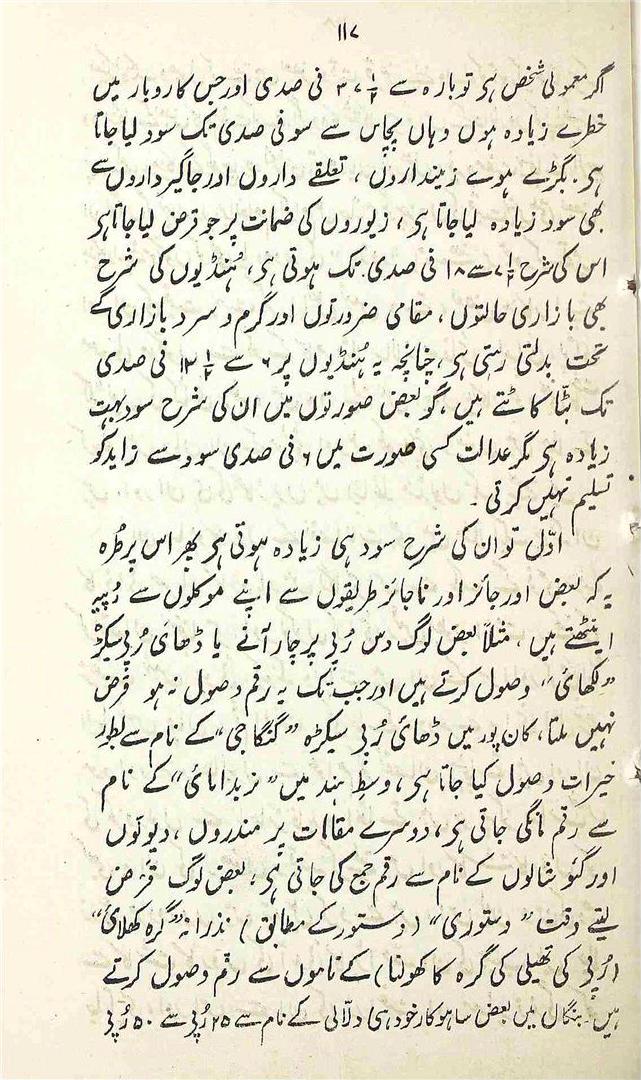 ۱۱۷
اگر معمولی شخص ہی تو بارہ سے ۳۷½ فی صدی اور جس کاروبار میں
خطرے زیادہ ہوں وہاں پچاس سے سو فی صدی تک سود لیا جاتا
ہی۔ بگڑے ہوے زمینداروں، تعلقے داروں اور جاگیرداروں سے
بھی سود زیادہ لیا جاتا ہی، زیوروں کی ضمانت پر جو قرض لیا جاتا ہی
اس کی شرح ۷½ سے ۱۸ فی صدی تک ہوتی ہی، ہُنڈیوں کی شرح
بھی بازاری حالتوں، مقامی ضرورتوں اور گرم و سرد بازاری کے
تحت بدلتی رہتی ہی، چنانچہ یہ ہُنڈیوں پر ۶ سے ۱۳½ فی صدی
تک بٹّا کاٹتے ہیں، گو بعض صورتوں میں ان کی شرح سود بہت
زیادہ ہی مگر عدالت کسی صورت میں ۶ فی صدی سود سے زاید کو
تسلیم نہیں کرتی۔
اوّل تو ان کی شرح سود ہی زیادہ ہوتی ہی پھر اس پر طُرہ
یہ کہ بعض اور جائز اور ناجائز طریقوں سے اپنے موکلوں سے رُپیہ
اینٹھتے ہیں، مثلاً بعض لوگ دس رُپی پر چار آنے یا ڈھائ رُپی سیکڑہ
”لکھائ“ وصول کرتے ہیں اور جب تک یہ رقم وصول نہ ہو قرض
نہیں ملتا، کان پور میں ڈھائ رُپی سیکڑہ ”گنگا جی“ کے نام سے بطور
خیرات وصول کیا جاتا ہی، وسطِ ہند میں ”نربدا مائ“ کے نام
سے رقم مانگی جاتی ہی، دوسرے مقامات پر مندروں، دیوتوں
اور گئو شالوں کے نام سے رقم جمع کی جاتی ہی، بعض لوگ قرض
لیتے وقت ”دستوری“ (دستور کے مطابق) نذرانہ ”گرہ کھلائ“
(رُپی کی تھیلی کی گرہ کا کھولنا) کے ناموں سے رقم وصول کرتے
ہیں۔ بنگال میں بعض ساہوکار خود ہی دلّالی کے نام سے ۲۵ رُپی سے ۵۰ رُپی